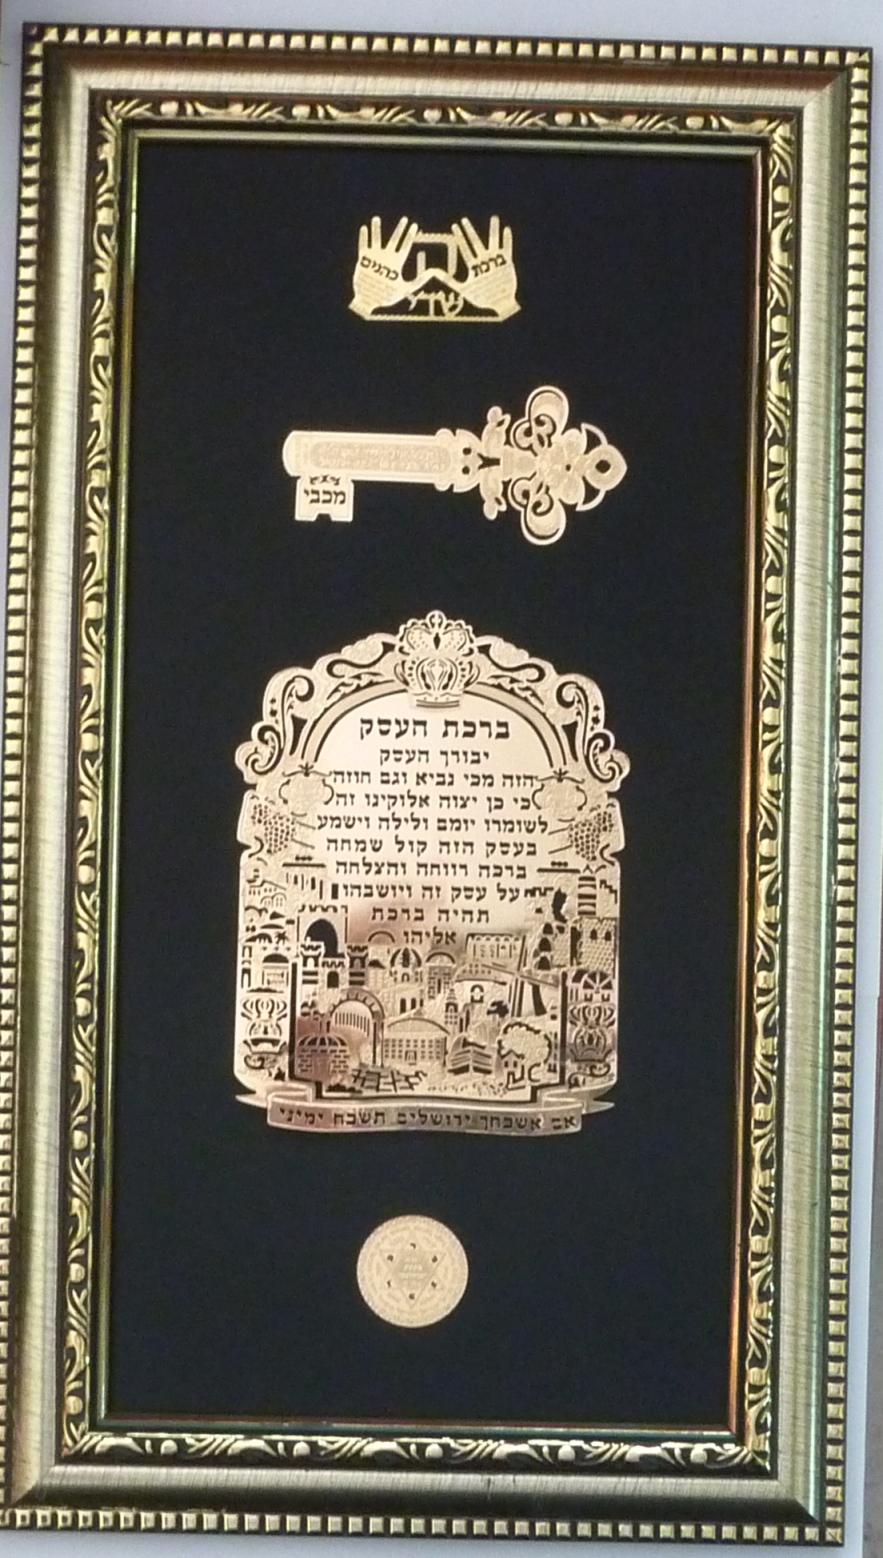 ברכת כהנים
ה
שדי
מכבי
ברכת העסק
יבורך העסק
הזה מכי נביא וגם חוזה
כי כן יצוה אלוקינו זה
לשומרו יומם ולילה וישמע
בעסק הזה קול שמחה
ברכה רווחה והצלחה
על עסק זה ויושבהו
תהיה ברכת
אליהו
אם אשכחך ירושלים תשכח ימיני